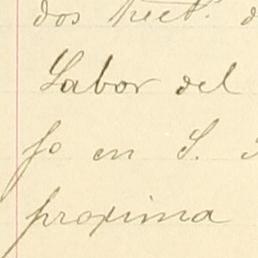 dos hect.
Labor del
fo en S.
proxima